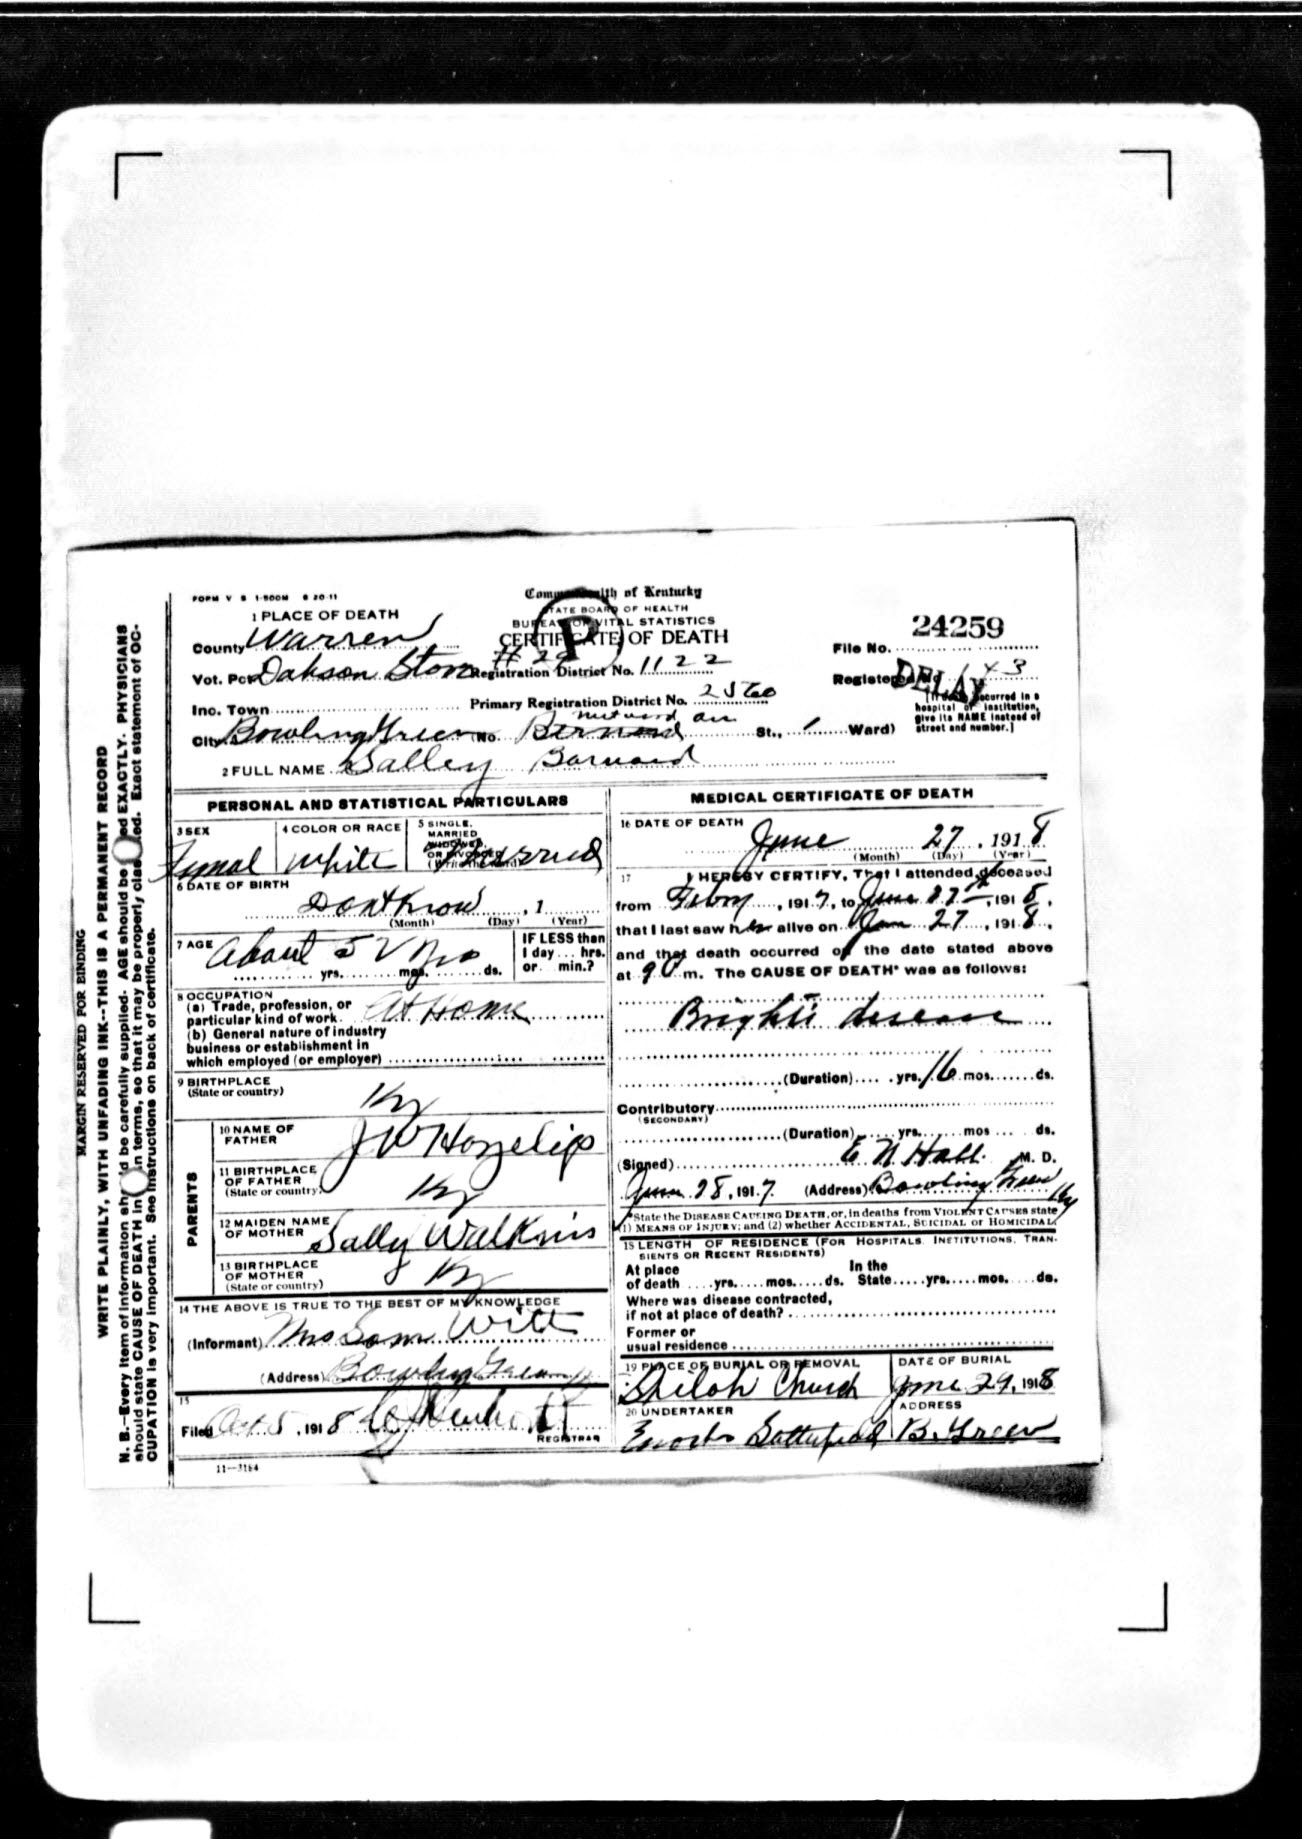 MARGIN RESERVED FOR BINDING
WRITE PLAINLY, WITH UNFADING INK--THIS IS A PERMANENT RECORD
N. B.--Every item of information should be carefully supplied. AGE should be stated EXACTLY. PHYSICIANS
should state CAUSE OF DEATH in plain terms, so that it may be properly classified. Exact statement of OC-
CUPATION is very important. See instructions on back of certificate.
FORM V S 1-500M 6 20-11
Commonwealth of Kentucky
STATE BOARD OF HEALTH
BUREAU OF VITAL STATISTICS
CERTIFICATE OF DEATH
P
1 PLACE OF DEATH
County Warren
Vot. Pct # 29
Registration District No. 1122
Inc. Town
Primary Registration District No. 2560
City Bowling Green No. St., Ward)
File No. 24259
Registered No 143
DELAY
[If death occurred in a
hospital or institution,
give its NAME instead of
street and number.]
2 FULL NAME Salley Barnard
PERSONAL AND STATISTICAL PARTICULARS
3 SEX
Femal
4 COLOR OR RACE
White
5 SINGLE,
MARRIED
WIDOWED,
OR DIVORCED
(Write the word)
Married
6 DATE OF BIRTH
Dont Know , 1
(Month) (Day) (Year)
7 AGE
About 5 yrs. mos. ds.
IF LESS than
1 day ... hrs.
or ... min.?
8 OCCUPATION
(a) Trade, profession, or
particular kind of work. At Home
(b) General nature of industry
business or establishment in
which employed (or employer)
9 BIRTHPLACE
(State or country)
Ky
PARENTS
10 NAME OF
FATHER
J W Hazelip
11 BIRTHPLACE
OF FATHER
(State or country)
Ky
12 MAIDEN NAME
OF MOTHER
Sally Walkins
13 BIRTHPLACE
OF MOTHER
(State or country)
Ky
14 THE ABOVE IS TRUE TO THE BEST OF MY KNOWLEDGE
(Informant) Mrs Sam Witt
(Address) Bowling Green Ky
15
Filed Oct 5, 1918
REGISTRAR
11—3184
MEDICAL CERTIFICATE OF DEATH
16 DATE OF DEATH
June 27, 1918
(Month) (Day) (Year)
17
I HEREBY CERTIFY, That I attended deceased
from Febry , 1917, to June 27th, 1918,
that I last saw her alive on June 27, 1918,
and that death occurred on the date stated above
at 9 m. The CAUSE OF DEATH* was as follows:
Bright's disease
(Duration) yrs. 16 mos. ds.
Contributory
(SECONDARY)
(Duration) yrs. mos ds.
(Signed) E N Hall M. D.
June 28, 1917. (Address) Bowling Green Ky
*State the DISEASE CAUSING DEATH, or, in deaths from VIOLENT CAUSES state
(1) MEANS OF INJURY; and (2) whether ACCIDENTAL, SUICIDAL or HOMICIDAL.
18 LENGTH OF RESIDENCE (FOR HOSPITALS, INSTITUTIONS, TRAN-
SIENTS OR RECENT RESIDENTS)
At place
of death yrs. mos. ds.
In the
State yrs. mos. ds.
Where was disease contracted,
if not at place of death?
Former or
usual residence
19 PLACE OF BURIAL OR REMOVAL
Shiloh Church
DATE OF BURIAL
June 29, 1918
20 UNDERTAKER
ADDRESS
B. Green